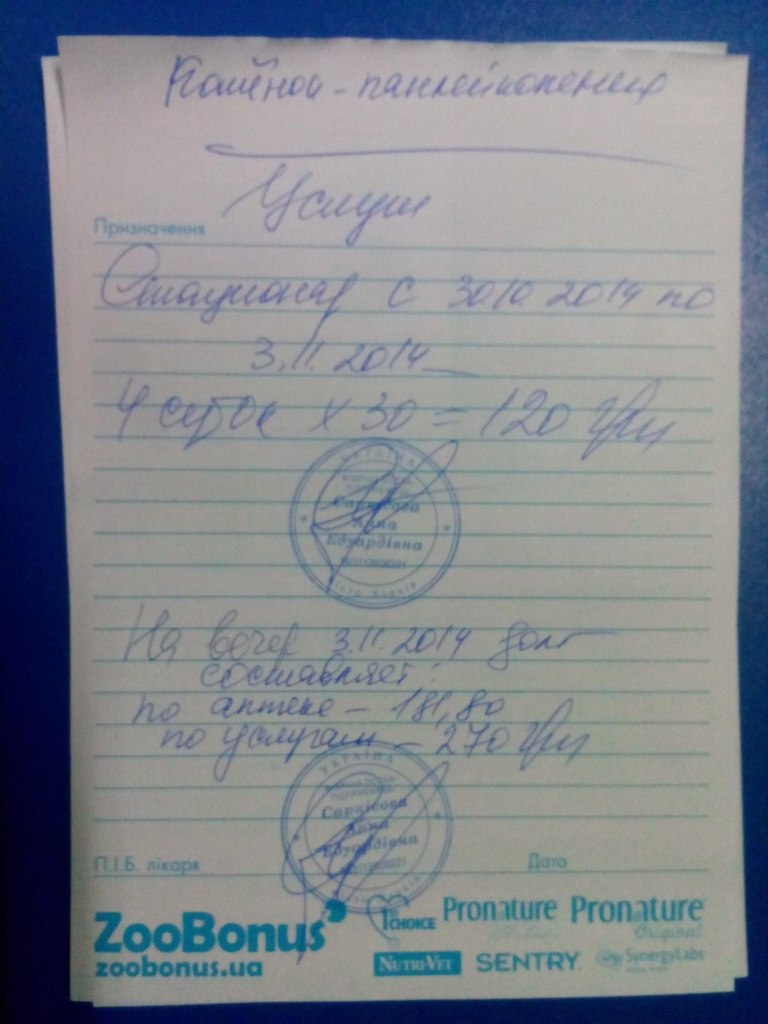 Котёнок - панлейкопения
Услуги
Призначення
Стационар с 30.10.2014 по
3.11.2014
4 суток х 30 = 120 грн
УКРАЇНА
Саркісова
Анна
Едуардівна
місто Харків
На вечер 3.11.2014 долг
составляет:
по аптеке - 181,80
по услугам - 270 грн
УКРАЇНА
Саркісова
Анна
Едуардівна
П.І.Б. лікаря Дата
ZooBonus
zoobonus.ua
1st CHOICE Pronature Pronature Original
NUTRI-VET SENTRY SynergyLabs